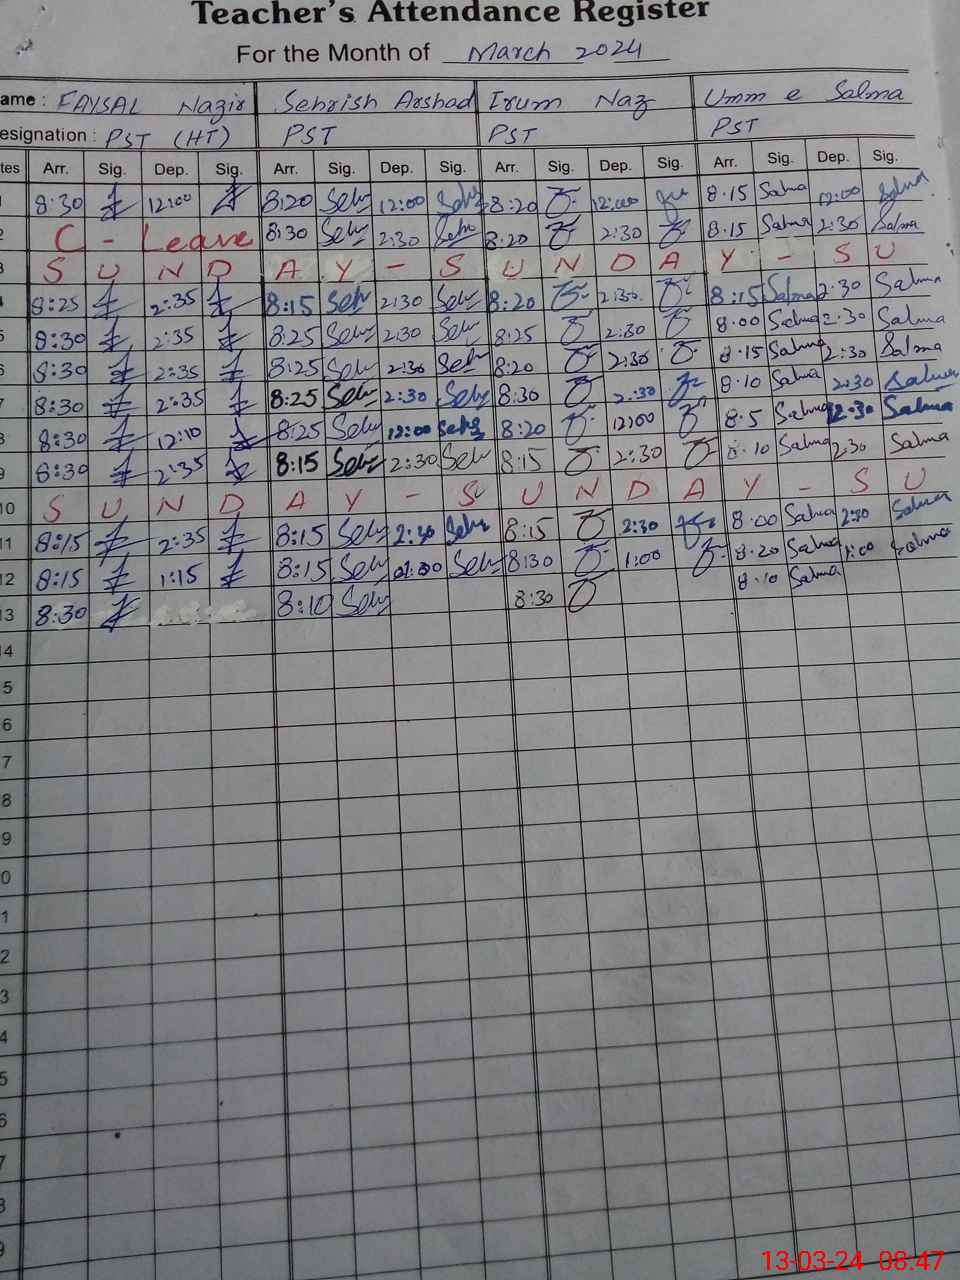 Teacher's Attendance Register
For the Month of March 2024
ame : FAYSAL Nazir Sehrish Arshad Irum Naz Umm e Salma
esignation : PST (HT) PST PST PST
tes Arr. Sig. Dep. Sig. Arr. Sig. Dep. Sig. Arr. Sig. Dep. Sig. Arr. Sig. Dep. Sig.
1 8:30 12:00 8:20 Seh 12:00 Seh 8:20 12:00 8.15 Salma 12:00 Salma
2 C - Leave 8:30 Seh 2:30 Seh 8.20 2:30 8.15 Salma 2:30 Salma
3 S U N D A Y - S U N D A Y - S U
4 8:25 2:35 8:15 Seh 2:30 Seh 8:20 2:30 8:15 Salma 2.30 Salma
5 8:30 2:35 8:25 Seh 2:30 Seh 8:25 2:30 8.00 Salma 2.30 Salma
6 8:30 2:35 8:25 Seh 2:30 Seh 8:20 2:30 8.15 Salma 2:30 Salma
7 8:30 2:35 8:25 Seh 2:30 Seh 8:30 2:30 8.10 Salma 2:30 Salma
8 8:30 12:10 8:25 Seh 12:00 Seh 8:20 12:00 8.5 Salma 12.30 Salma
9 8:30 2:35 8:15 Seh 2:30 Seh 8:15 2:30 8.10 Salma 2.30 Salma
10 S U N D A Y - S U N D A Y - S U
11 8:15 2:35 8:15 Seh 2:30 Seh 8:15 2:30 8.00 Salma 2:30 Salma
12 8:15 1:15 8:15 Seh 01:00 Seh 8:30 1:00 8.20 Salma 1:00 Salma
13 8:30 8:10 Seh 8:30 8.10 Salma
14
5
6
7
8
9
0
1
2
3
4
5
6
7
8
9
13-03-24 08:47